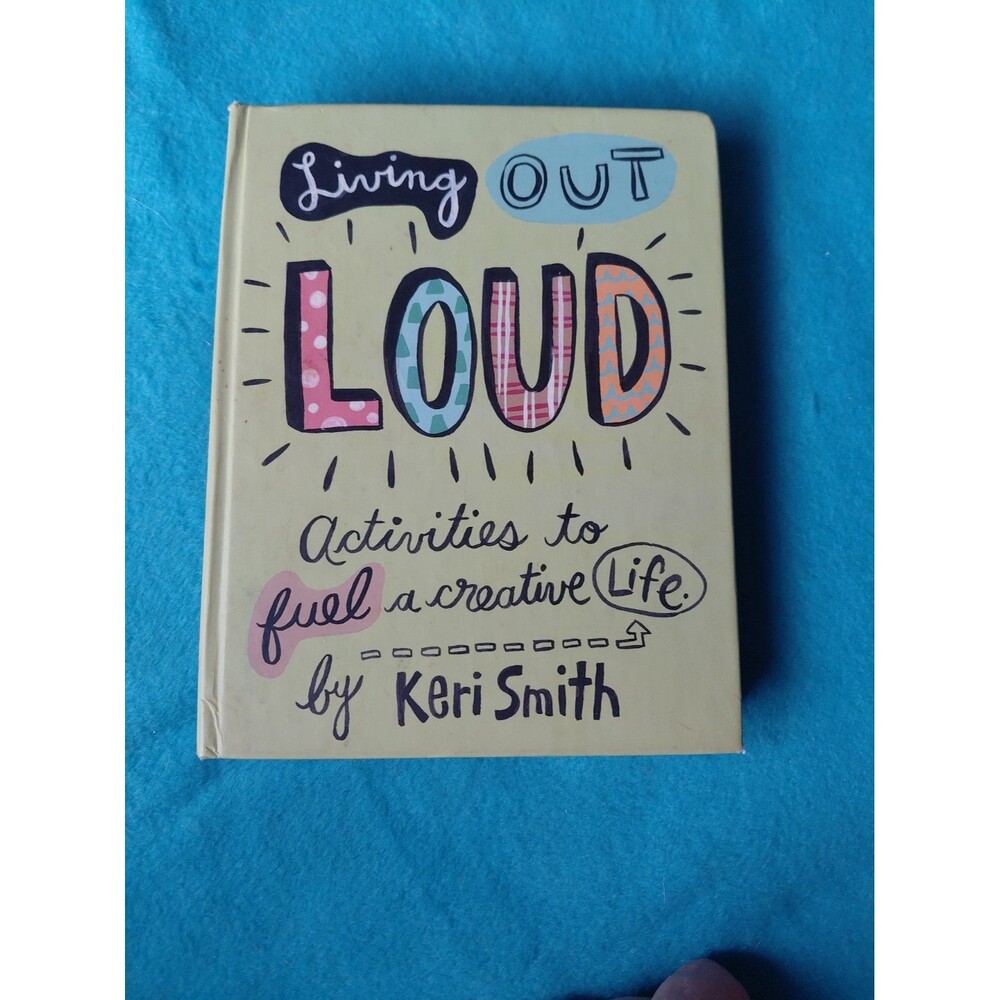 Living OUT
LOUD
Activities to
fuel a creative Life.
by Keri Smith